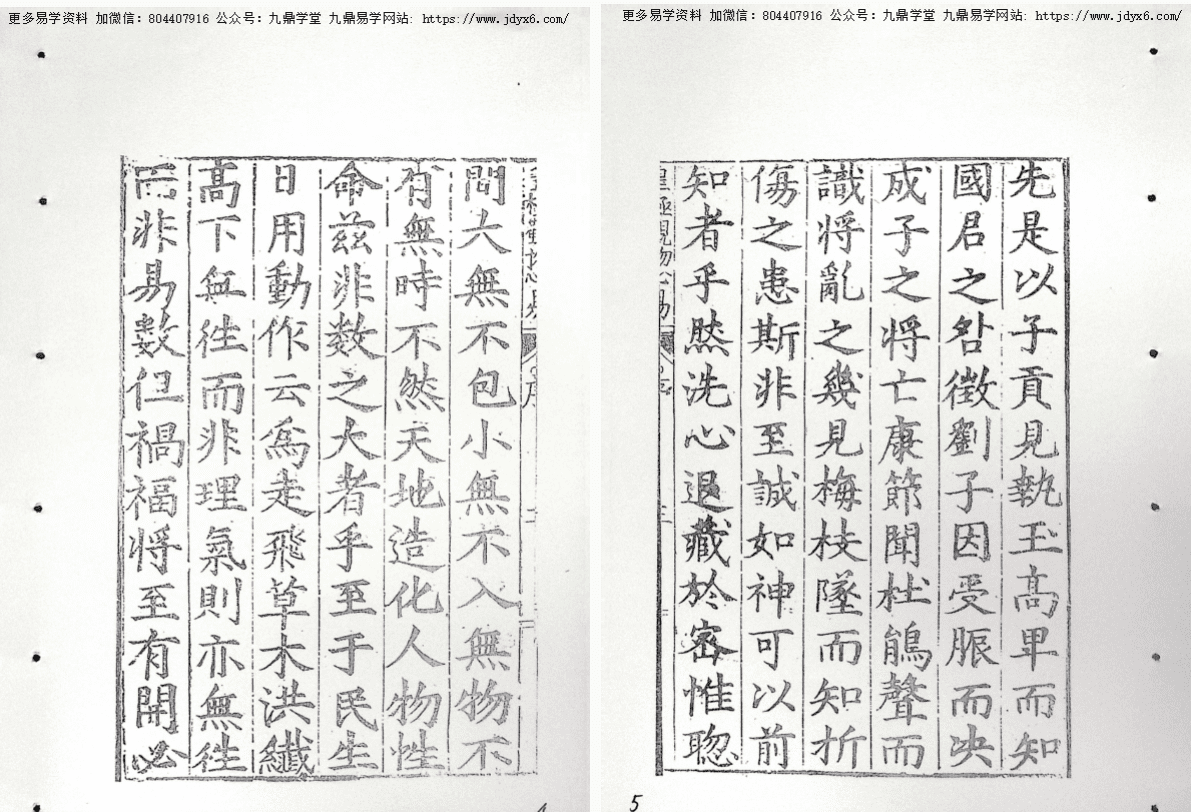 更多易学资料 加微信：804407916 公众号：九鼎学堂 九鼎易学网站：https://www.jdyx6.com/
間大無不包小無不入無物不
有無時不然天地造化人物性
命兹非数之大者乎至于民生
日用動作云爲走飛草木洪纖
髙下無徃而非理氣則亦無徃
而非易數但禍福将至有開必
4
更多易学资料 加微信：804407916 公众号：九鼎学堂 九鼎易学网站：https://www.jdyx6.com/
先是以子貢見執玉髙卑而知
國君之咎徵劉子因受脤而决
成子之将亡康節聞杜鵑聲而
識将亂之幾見梅枝墜而知折
傷之患斯非至誠如神可以前
知者乎然洗心退藏於密惟聦
皇極觀物心易
5